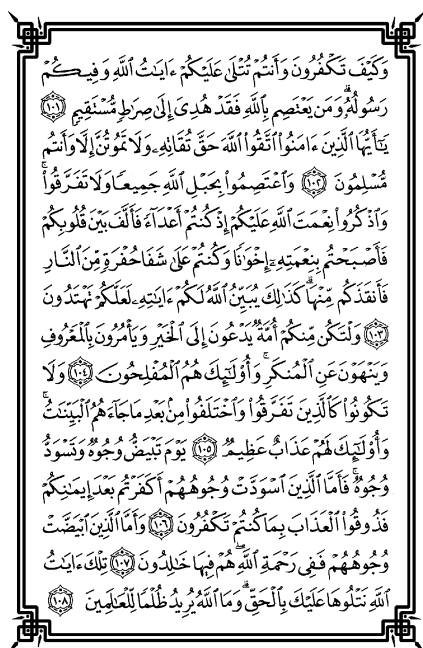 وَكَيۡفَ تَكۡفُرُونَ وَأَنتُمۡ تُتۡلَىٰ عَلَيۡكُمۡ ءَايَٰتُ ٱللَّهِ وَفِيكُمۡ
رَسُولُهُۥۗ وَمَن يَعۡتَصِم بِٱللَّهِ فَقَدۡ هُدِيَ إِلَىٰ صِرَٰطٖ مُّسۡتَقِيمٖ ١٠١
يَٰٓأَيُّهَا ٱلَّذِينَ ءَامَنُواْ ٱتَّقُواْ ٱللَّهَ حَقَّ تُقَاتِهِۦ وَلَا تَمُوتُنَّ إِلَّا وَأَنتُم
مُّسۡلِمُونَ ١٠٢ وَٱعۡتَصِمُواْ بِحَبۡلِ ٱللَّهِ جَمِيعٗا وَلَا تَفَرَّقُواْۚ
وَٱذۡكُرُواْ نِعۡمَتَ ٱللَّهِ عَلَيۡكُمۡ إِذۡ كُنتُمۡ أَعۡدَآءٗ فَأَلَّفَ بَيۡنَ قُلُوبِكُمۡ
فَأَصۡبَحۡتُم بِنِعۡمَتِهِۦٓ إِخۡوَٰنٗا وَكُنتُمۡ عَلَىٰ شَفَا حُفۡرَةٖ مِّنَ ٱلنَّارِ
فَأَنقَذَكُم مِّنۡهَاۗ كَذَٰلِكَ يُبَيِّنُ ٱللَّهُ لَكُمۡ ءَايَٰتِهِۦ لَعَلَّكُمۡ تَهۡتَدُونَ
١٠٣ وَلۡتَكُن مِّنكُمۡ أُمَّةٞ يَدۡعُونَ إِلَى ٱلۡخَيۡرِ وَيَأۡمُرُونَ بِٱلۡمَعۡرُوفِ
وَيَنۡهَوۡنَ عَنِ ٱلۡمُنكَرِۚ وَأُوْلَٰٓئِكَ هُمُ ٱلۡمُفۡلِحُونَ ١٠٤ وَلَا
تَكُونُواْ كَٱلَّذِينَ تَفَرَّقُواْ وَٱخۡتَلَفُواْ مِنۢ بَعۡدِ مَا جَآءَهُمُ ٱلۡبَيِّنَٰتُۚ
وَأُوْلَٰٓئِكَ لَهُمۡ عَذَابٌ عَظِيمٞ ١٠٥ يَوۡمَ تَبۡيَضُّ وُجُوهٞ وَتَسۡوَدُّ
وُجُوهٞۚ فَأَمَّا ٱلَّذِينَ ٱسۡوَدَّتۡ وُجُوهُهُمۡ أَكَفَرۡتُم بَعۡدَ إِيمَٰنِكُمۡ
فَذُوقُواْ ٱلۡعَذَابَ بِمَا كُنتُمۡ تَكۡفُرُونَ ١٠٦ وَأَمَّا ٱلَّذِينَ ٱبۡيَضَّتۡ
وُجُوهُهُمۡ فَفِي رَحۡمَةِ ٱللَّهِۖ هُمۡ فِيهَا خَٰلِدُونَ ١٠٧ تِلۡكَ ءَايَٰتُ
ٱللَّهِ نَتۡلُوهَا عَلَيۡكَ بِٱلۡحَقِّۗ وَمَا ٱللَّهُ يُرِيدُ ظُلۡمٗا لِّلۡعَٰلَمِينَ ١٠٨